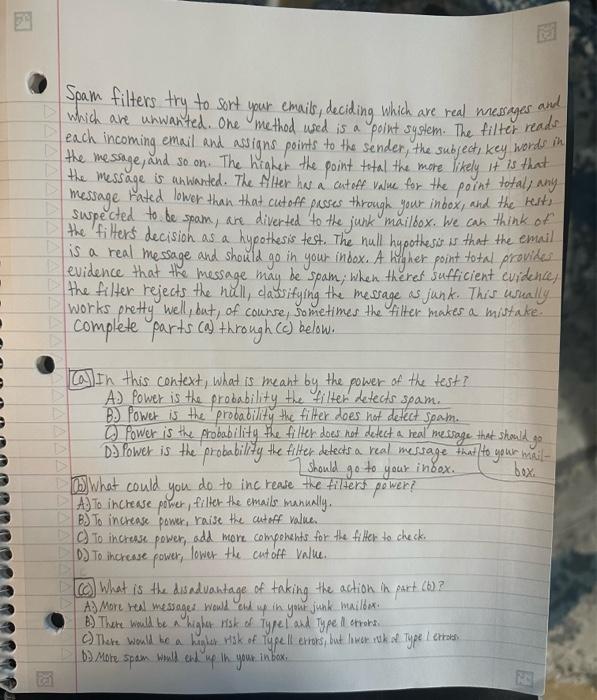 Spam filters try to sort your emails, deciding which are real messages and
which are unwanted. One method used is a point system. The filter reads
each incoming email and assigns points to the sender, the subject, key words in
the message, and so on. The higher the point total the more likely it is that
the message is unwanted. The filter has a cutoff value for the point total; any
message rated lower than that cutoff passes through your inbox, and the rest,
suspected to be spam, are diverted to the junk mailbox. We can think of
the filters decision as a hypothesis test. The null hypothesis is that the email
is a real message and should go in your inbox. A higher point total provides
evidence that the message may be spam; when theres sufficient evidence,
the filter rejects the null, classifying the message as junk. This usually
works pretty well, but, of course, sometimes the filter makes a mistake.
Complete parts (a) through (c) below.
(a) In this context, what is meant by the power of the test?
A.) Power is the probability the filter detects spam.
B.) Power is the probability the filter does not detect spam.
C.) Power is the probability the filter does not detect a real message that should go to your mail-box.
D.) Power is the probability the filter detects a real message that should go to your inbox.
(b) What could you do to increase the filters power?
A.) To increase power, filter the emails manually.
B.) To increase power, raise the cutoff value.
C.) To increase power, add more components for the filter to check.
D.) To increase power, lower the cutoff value.
(c) What is the disadvantage of taking the action in part (b)?
A.) More real messages would end up in your junk mailbox.
B.) There would be a higher risk of Type I and Type II errors.
C.) There would be a higher risk of Type II errors, but lower risk of Type I errors.
D.) More spam would end up in your inbox.